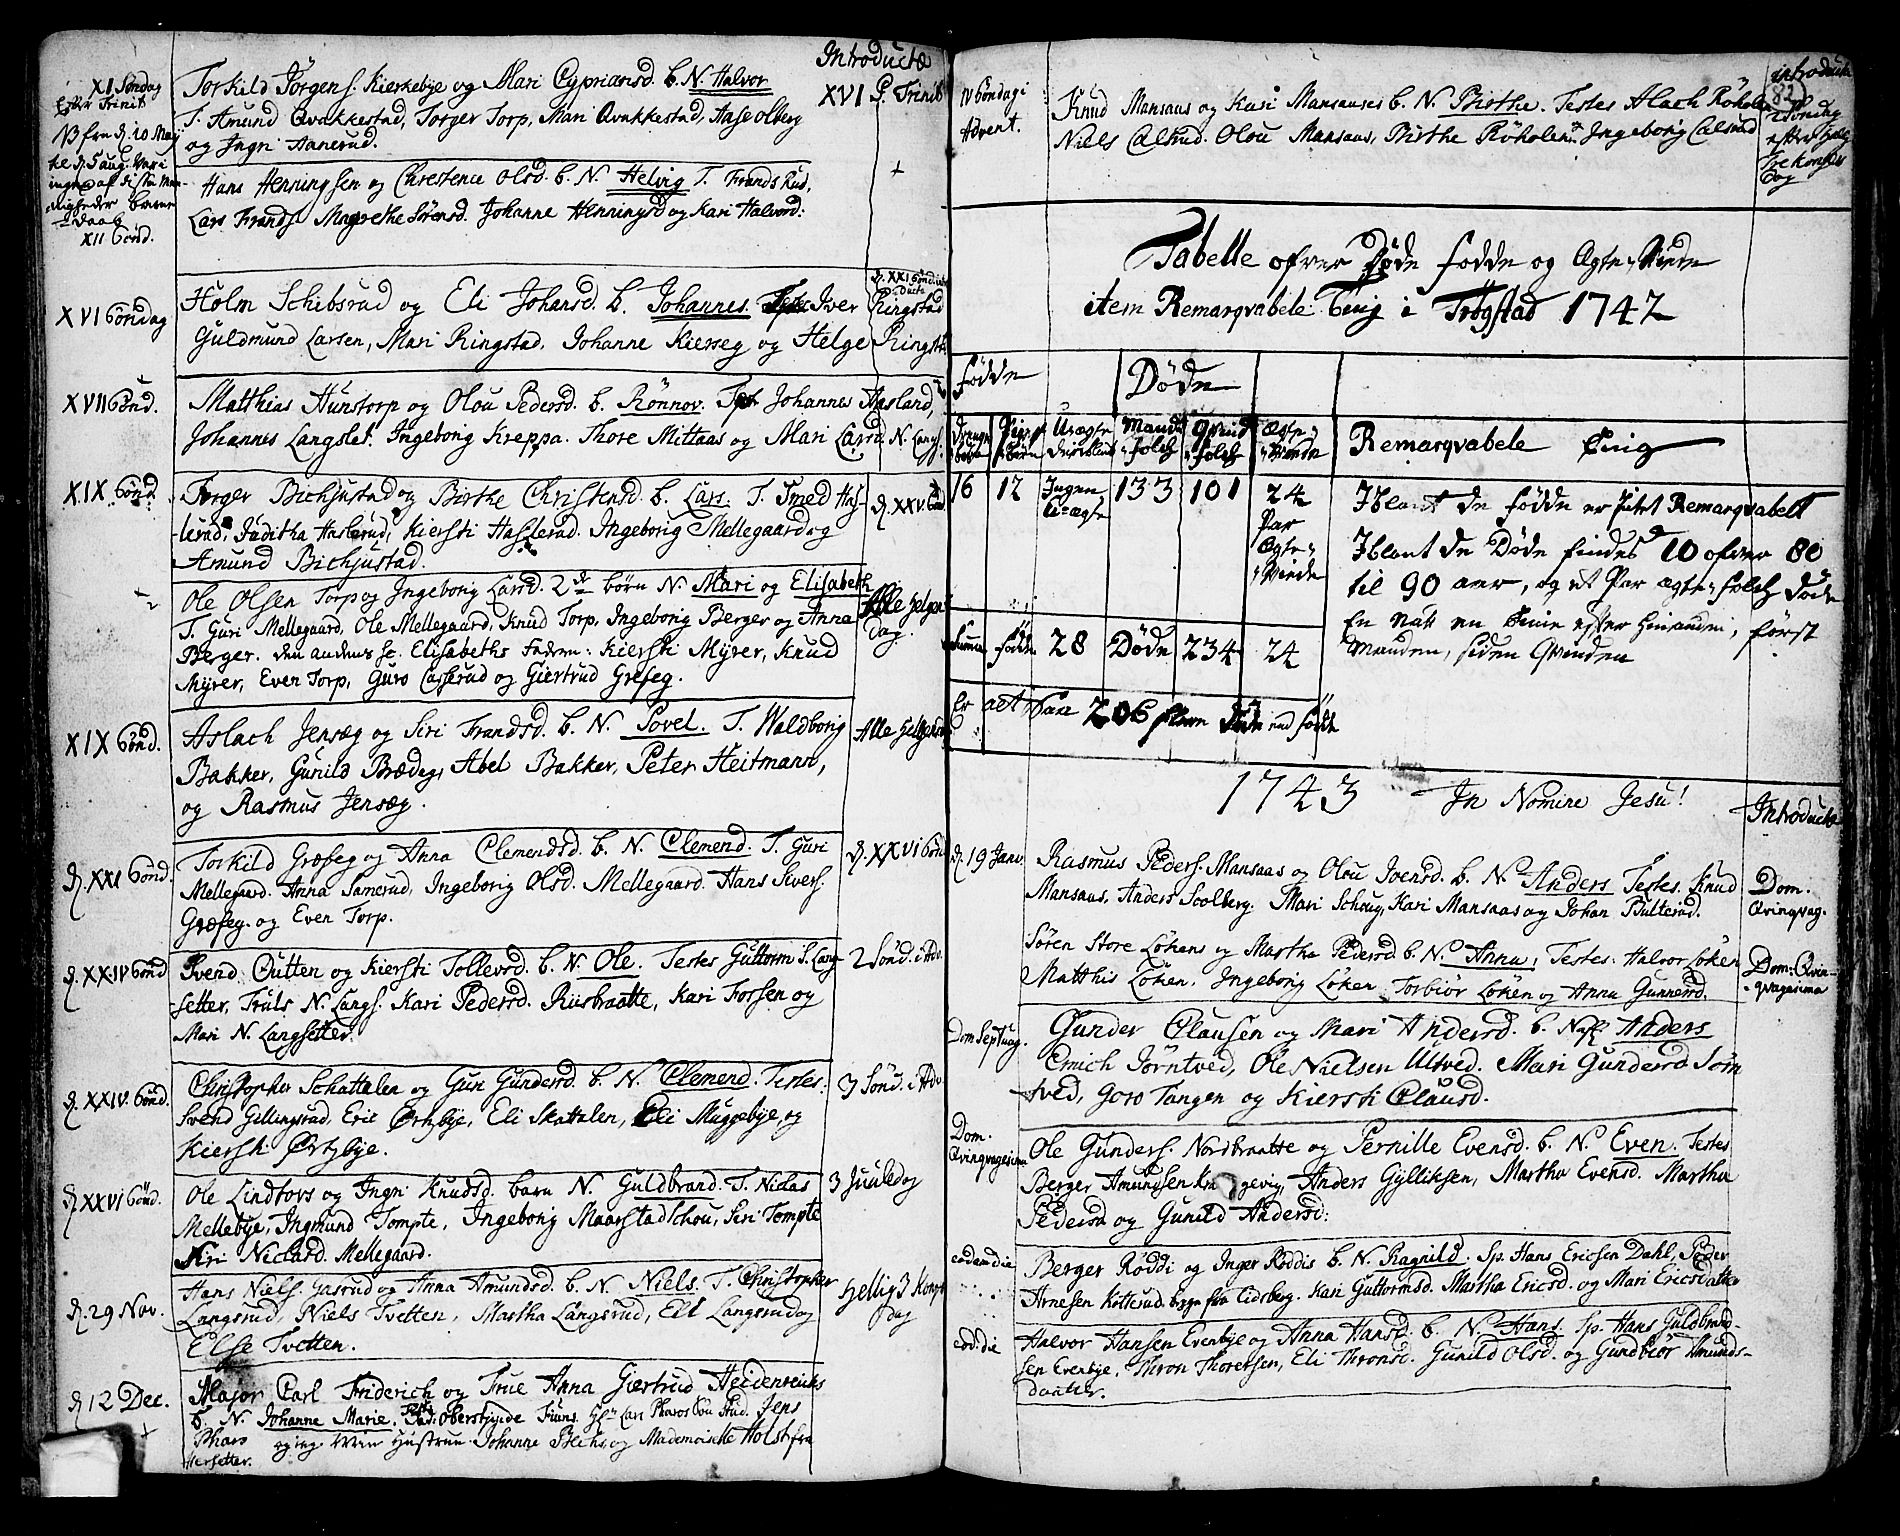 Introductæ
XI Søndag
Efter Trinit
NB fra d. 10 Maij
til d. 5 aug. var i
ingen af disse Maa-
nigheder børn
I Daab
Torkild Jörgens. Kierkebye og Mari Cypriansd. b. N. Halvor
T. Amund Qvakkestad, Torger Torp, Mari Qvakkestad, Aase Olberg
og Ingri Aanerud.
XVI S. Trinit
XII Sönd.
Hans Henningsen og Chrestence Olsd. b. N. Helvig T. Frands Rud,
Lars Frands. Magrethe Sørensd. Johanne Henningsd og Kari Halvord:
+
XVI Söndag
Holm Schibsrud og Eli Johansd. b. Johannes Testes Iver Ringstad
Guldmund Larsen, Mari Ringstad, Johanne Kierseg og Helge Ringst.
d. XXI Sönd.
XVII Sönd.
Matthias Hunstorp og Olou Pedersd. b. Rönnov. Test. Johannes Aasland,
Johannes Langslet. Ingeborg Kreppa. Thore Mittaas og Mari Larsd N. Langs.
XIX Sönd
Torger Bichjustad og Birthe Christensd. b. Lars. T. Tmed Has-
lerud, Juditha Haslerud, Kiersti Haslerud. Ingeborg Mellegaard og
Amund Bichjustad.
d. XXV. Sönd.
Ole Olsen Torp og Ingeborg Larsd. 2de börn N. Mari og Elisabeth
T. Guri Mellegaard, Ole Mellegaard, Knud Torp, Ingeborg Berger og Anna
Berger. den andens sc. Elisabeths Faddere: Kiersti Myrer, Knud
Myrer, Even Torp, Guro Casserud og Giertrud Grefeg.
Alle Helgens
Dag.
XIX Sönd.
Aslach Jensæg og Siri Frandsd. b. N. Povel. T. Waldborg
Bakker, Gunild Brædeg, Abel Bakker, Peter Heitmann,
og Rasmus Jensæg.
Alle Helgensd
d. XXI Sönd.
Torkild Græfeg og Anna Clemendsd. b. N. Clemend. T. Guri
Mellegaard. Anna Samerud, Ingeborg Olsd. Mellegaard. Hans Sivers.
Græfeg. og Even Torp.
d. XXVI Sönd
d. XXIV Sönd
Svend Qutten og Kiersti Tollevsd. b. N. Ole. Testes Guttorm S. Lang-
setter, Truls N. Langs. Kari Pedersd. Riisbraatte, Kari Forsen og
Mari N. Langsetter.
2 Sönd. i Adv.
d. XXIV. Sönd.
Christopher Schattelen og Guri Gundersd. b. N. Clemend. Testes.
Svend Gillingsrud, Eric Ørtzbye, Eli Skattalen, Eli Muggebye, og
Kiersti Ørtzbye.
3 Sönd. i Adv
d. XXVI Sönd.
Ole Lindfors og Ingri Knudsd. barn N. Guldbrand. T. Niclas
Mellebye, Ingmund Tompte, Ingeborg Maarstad Schou, Siri Tompte
Siri Niclasd. Mellegaard.
3 Juuledag
d. 29 Nov.
Hans Niels. Gasrud og Anna Amundsd. b. N. Niels. T. Christopher
Langsrud, Niels Tvetten, Martha Langsrud, Eli Langsrud og
Else Tvetten.
Hellig 3 Kong.
Dag
d. 12 Dec.
Major Carl Friderich og Frue Anna Giertrud Heidenreichs
b. N. Johanne Marie. Test: Oberstinde Funs. Hr Lars Pharos Søn Stud. Jens
Pharo og ing. Win Hustrue Johanne Blechs, og Mademoiselle Holst fra
Hersetter.
introduct.
82
IV Söndag i
Advent.
Knud Mansaas og Kari Mansaases b. N. Birthe. Testes Aslach Röholen
Niels Calsrud. Olou Mansaas, Birthe Röholen. Ingeborg Calsrud
Söndag
efter Hellig
Tre Konger
Dag
Tabelle ofver Døde fødde og Egte-Viede
item Remarqvabele Ting i Trögstad 1742
Födde
Døde
Drenge
börn
Pige
börn
Uægte
Mands
folch
Qvind
folch
Ægte
Viede
Remarqvabele Ting
16 12 Ingen
Uægte 133 101 24
Par
Egte-
Viede
Iblant de födde er intet Remarqvabelt
Iblant de Döde findes 10 ofver 80
til 90 aar, og et Par ægte-folch døde
En natt en Time efter hinanden, först
Manden, siden Qvinden
Summa födde 28 Døde 234 24
Er alt saa 206 flere døde end födde
1743 In Nomine Jesu!
Introductæ
d. 19 Janv.
Rasmus Peders. Mansaas og Olou Joensd. b. N. Anders Testes. Knud
Mansaas, Anders Soolberg. Mari Schoug, Kari Mansaas og Johan Bulterud.
Dom.
Qvinqvag.
Sören Store Lökens og Martha Pedersd b. N. Anna, Testes. Halvor Löken
Matthis Löken, Ingeborg Löken. Torbiör Löken og Anna Gunnersd.
Dom: Qvin-
qvagesima
Dom Septuag.
Gunder Clausen og Mari Andersd. b. Nafn Anders
Emich Törntved, Ole Nielsen Ultved. Mari Gundersd Törn
tved, Goro Tangen og Kiersti Clausd.
Dom.
Qvinqvagesima
Ole Gunders. Nordbraatte og Pernille Evensd. b. N. Even. Testes
Berger Amundsen Anders Gylliksen, Martha Evensd. Martha
Pedersd og Gunild Andersd:
eodem die
Berger Röddi og Inger Röddis b. N. Ragnild. Sp. Hans Ericsen Dahl, Peder
Arnesen Kottesud. begge fra Eidsberg. Kari Guttormsd. Martha Ericsd. og Mari Ericsdatter
eod: die
Halvor Hansen Evenbye og Anna Hansd. b. N. Hans. Sp. Hans Guldbrand-
sen Evenbye, Thron Thoresen, Eli Thronsd. Gunild Olsd. og Gundbiör Amunds-
daatter.